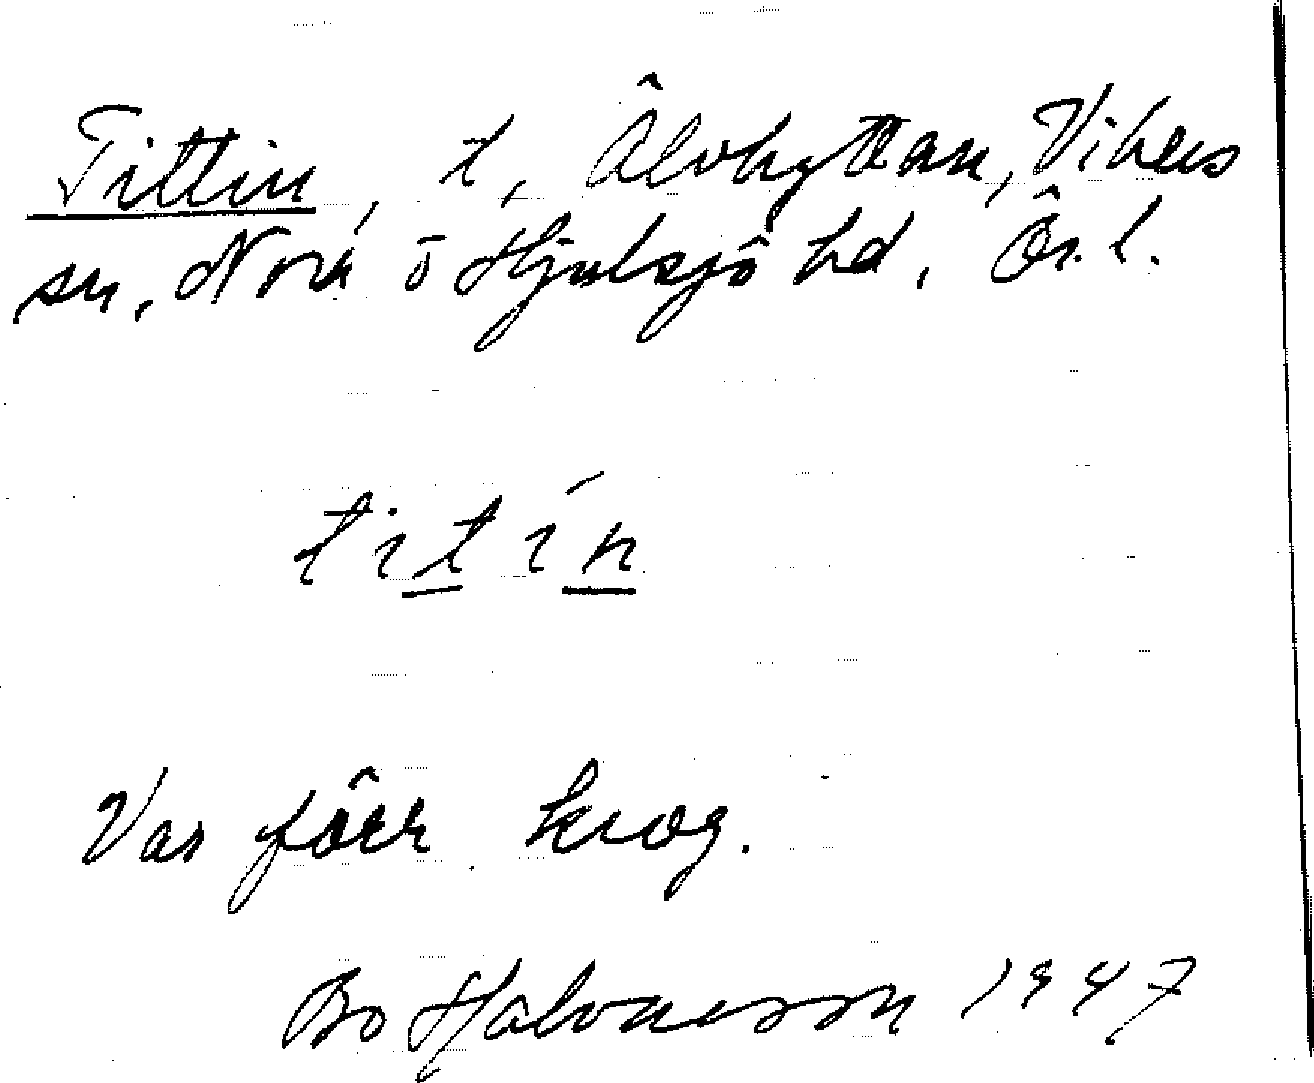 Tittin, t, Älvhyttan, Vikers
sn, Nora o Hjulsjö hd, Ör. l.
titín
Var förr krog.
Bo Halvarsson 1947